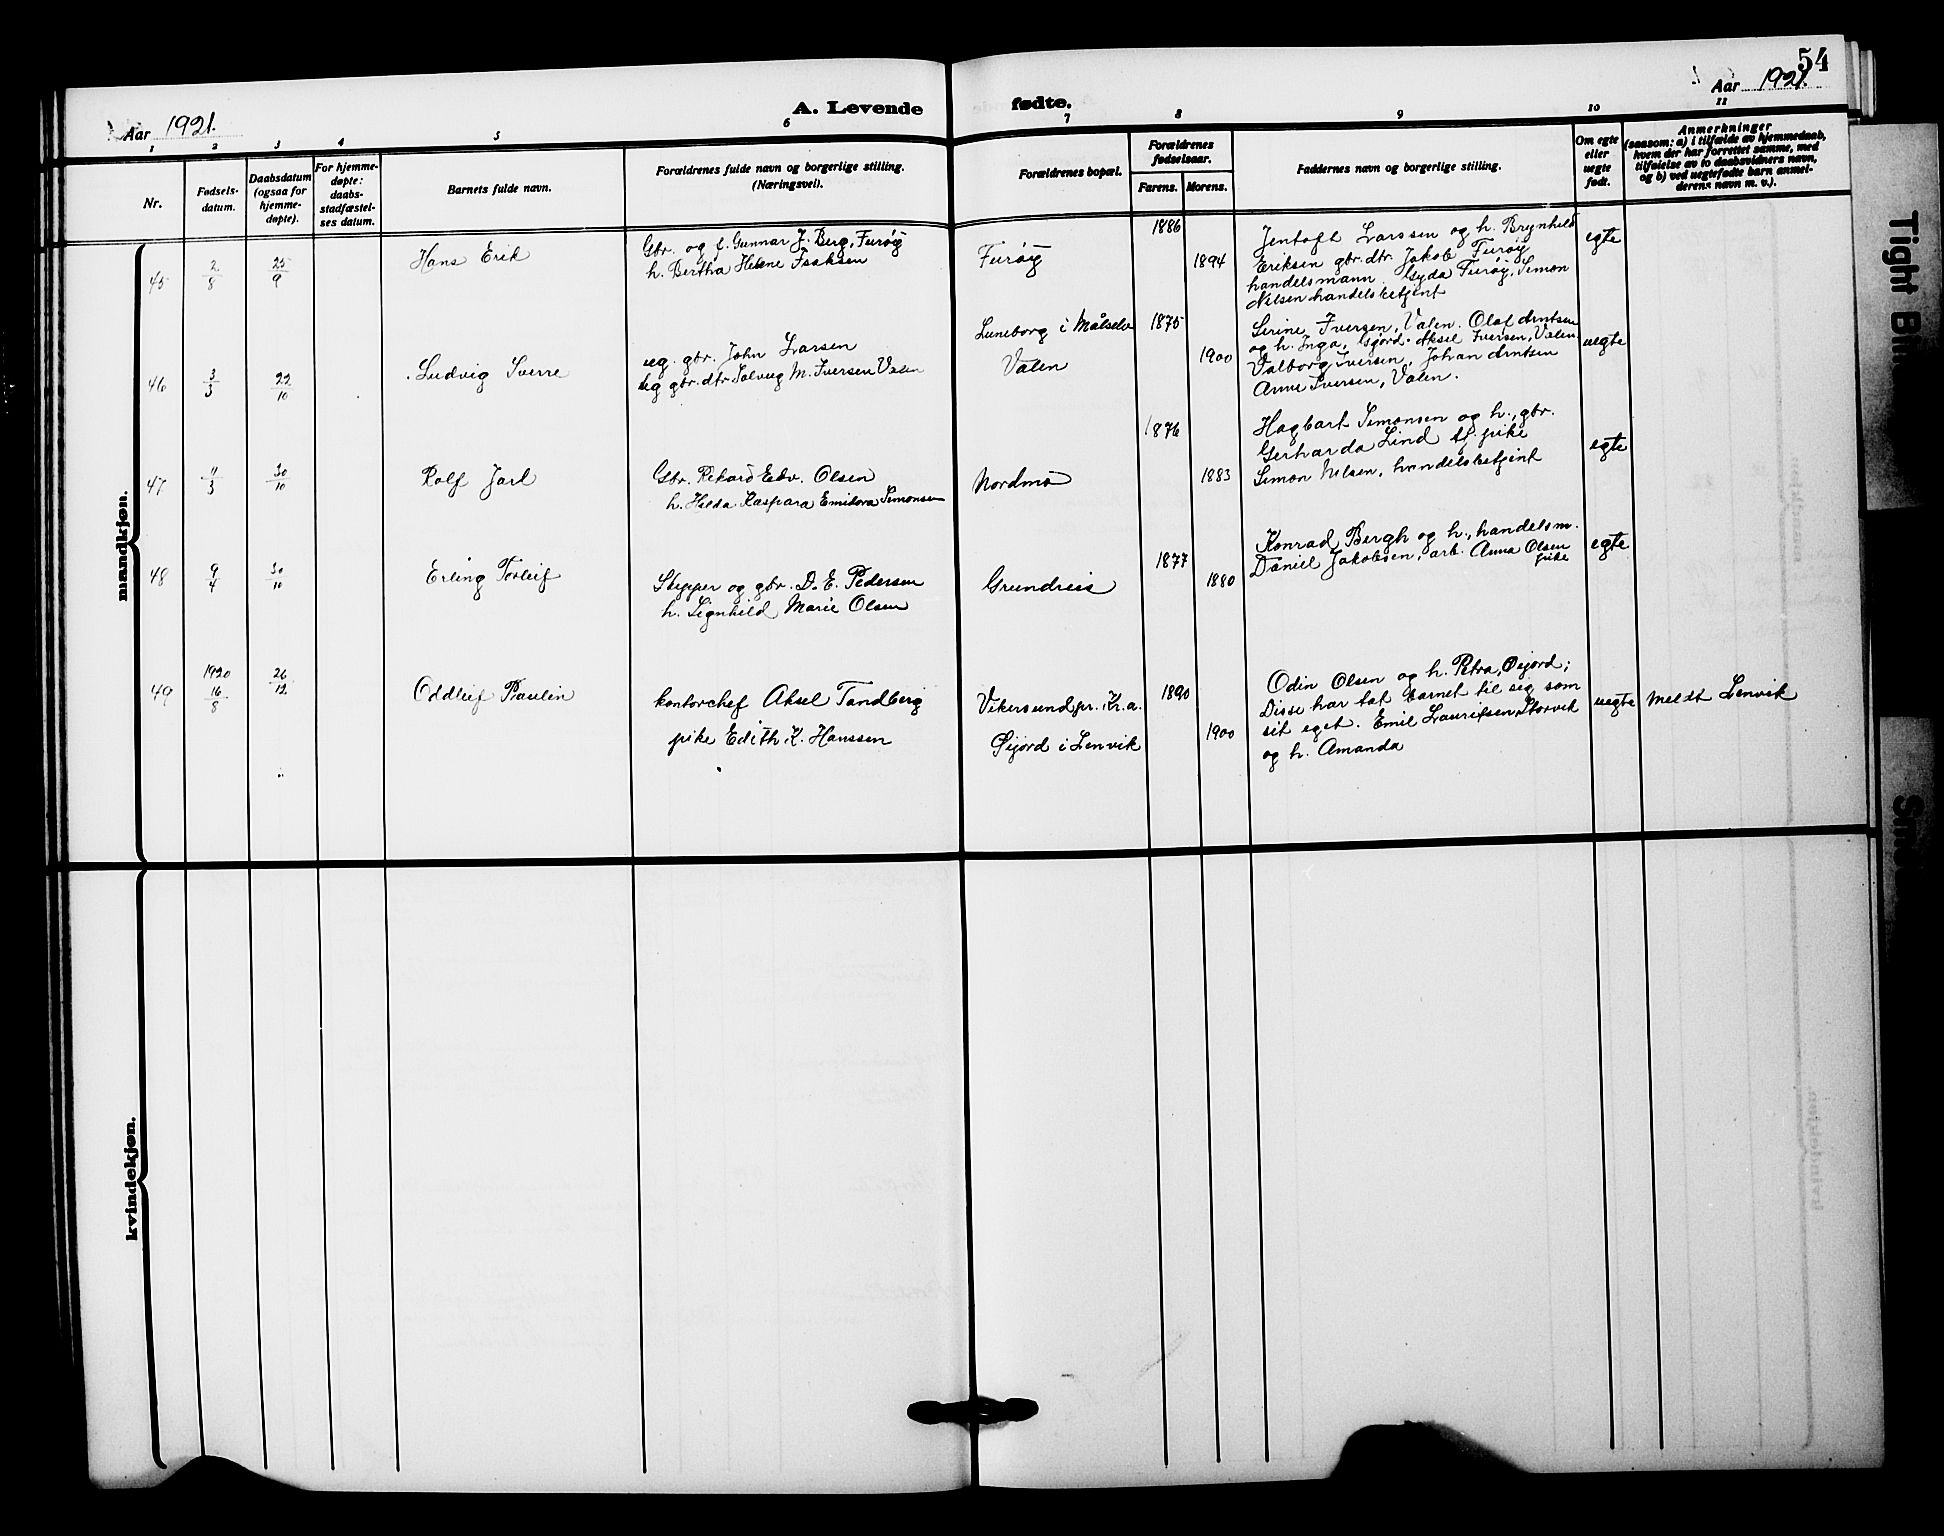 54
A. Levende fødte.
Aar 1921.
Aar 1921.
1 2 3 4 5 6 7 8 9 10 11
Nr.
Fødsels-
datum.
Daabsdatum
(ogsaa for
hjemme-
døpte).
For hjemme-
døpte:
daabs-
stadfæstel-
ses datum.
Barnets fulde navn.
Forældrenes fulde navn og borgerlige stilling.
(Næringsvei).
Forældrenes bopæl.
Forældrenes
fødselsaar.
Farens. Morens.
Faddernes navn og borgerlige stilling.
Om egte
eller
uegte
født.
Anmerkninger
(saasom: a) i tilfælde av hjemmedaab,
hvem der har forrettet samme, med
tilføielse av to daabsvidners navn,
og b) ved uegtefødte barn anmel-
derens navn m. v.).
mandkjøn.
45 2/8 25/9
Hans Erik
Gbr. og f. Gunnar J. Berg, Furøy
h. Bertha Helene Isaksen
Furøy
1886
1894
Jentoft Larssen og h. Brynhild
Eriksen gbr. dtr. Jakob Furøy
handelsmann Gyda Furøy, Simon
Nilsen handelsbetjent
egte
46 3/3 22/10
Ludvig Sverre
ug. gbr. John Larsen
ug gbr. dtr. Solveig M. Iversen Valen
Luneborg i Målselv
Valen
1875
1900
Serine Iversen, Valen. Olaf Arntsen
og h. Inga, Gjørd. Aksel Iversen, Valen.
Valborg Iversen, Johan Arntsen
Anne Iversen, Valen.
uegte
47 11/3 30/10
Rolf Jarl
Gbr. Rikard Edv. Olsen
h. Hilda Kaspara Emidora Simonsen
Nordmo
1876
1883
Hagbart Simonsen og h., gbr.
Gerharda Lind tj. pike
Simon Nilsen, handelsbetjent
egte
48 9/4 30/10
Erling Torleif
Skipper og gbr. D. E. Pedersen
h. Signhild Marie Olsen
Grundreis
1877
1880
Konrad Bergh og h., handelsm.
Daniel Jakobsen, arb. Anna Olsen
pike
egte
49 1920 16/8 26/12
Oddleif Paulin
kontorchef Aksel Tandberg
pike Edith K. Hanssen
Vikersund pr. Kr.a.
Øijord i Lenvik
1890
1900
Odin Olsen og h. Petra, Øijord;
Disse har tat barnet til seg som
sit eget. Emil Lauritsen, Storvik
og h. Amanda
uegte
Meldt Lenvik
kvindekjøn.
Tight Bi